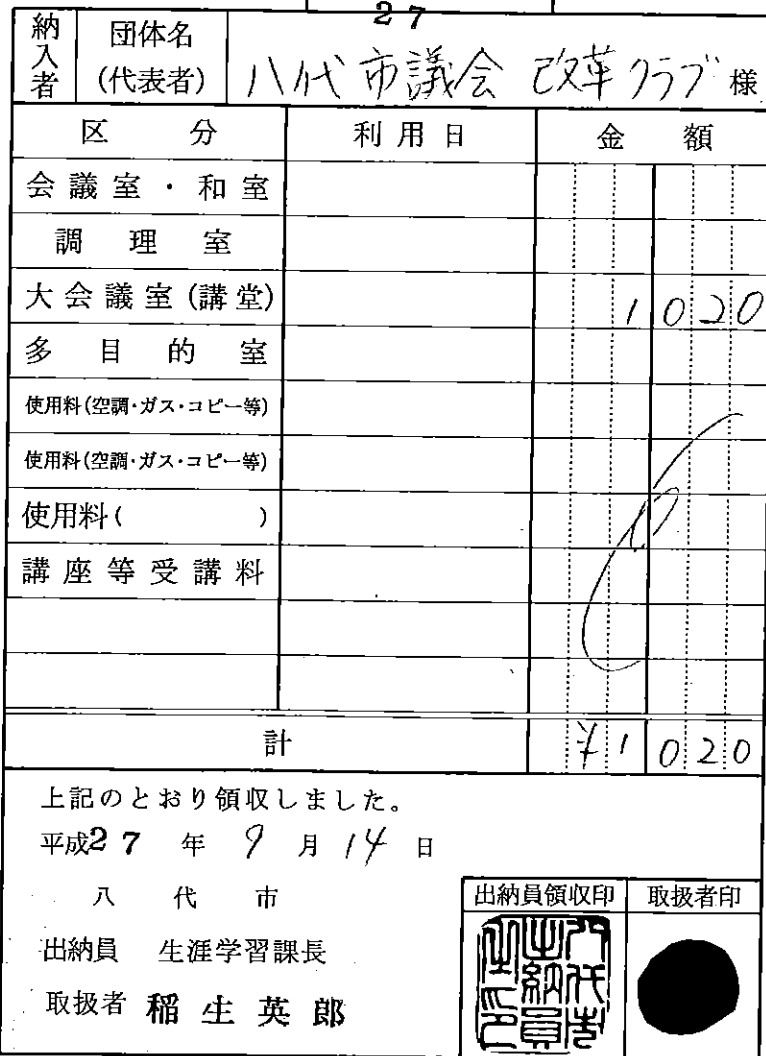 27
納入者 団体名(代表者) 八代市議会 改革クラブ 様
区分 利用日 金額
会議室・和室
調理室
大会議室(講堂) 1020
多目的室
使用料(空調・ガス・コピー等)
使用料(空調・ガス・コピー等)
使用料( )
講座等受講料
計 ¥1020
上記のとおり領収しました。
平成27年9月14日
八代市
出納員領収印 取扱者印
出納員 生涯学習課長
取扱者 稲生英郎
八代市出納員之印